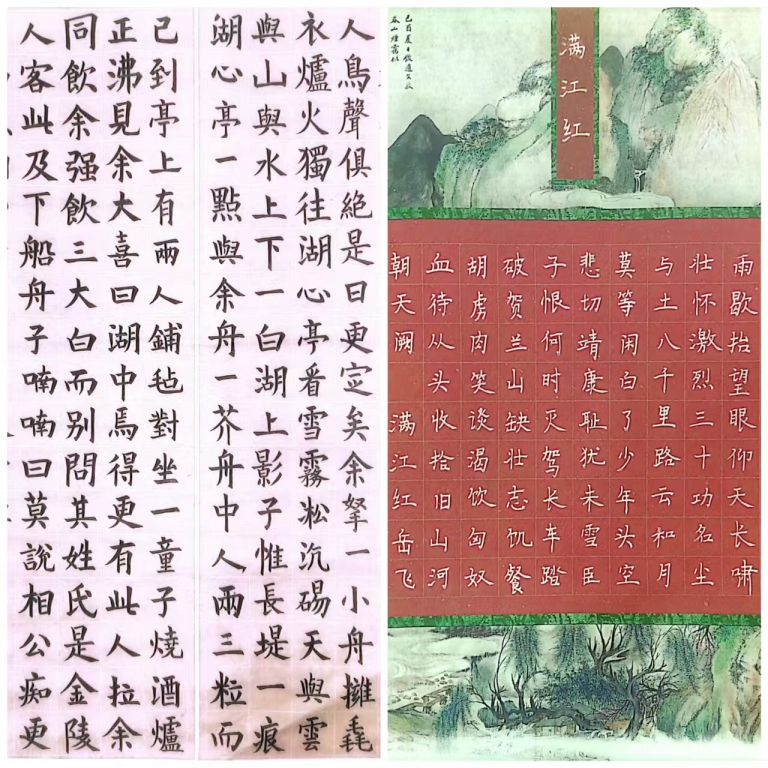 人鳥聲俱絕是日更定矣余拏一小舟擁毳
衣爐火獨往湖心亭看雪霧凇沆碭天與雲
與山與水上下一白湖上影子惟長堤一痕
湖心亭一點與余舟一芥舟中人兩三粒而
已到亭上有兩人鋪毡對坐一童子燒酒爐
正沸見余大喜曰湖中焉得更有此人拉余
同飲余强飲三大白而别問其姓氏是金陵
人客此及下船舟子喃喃曰莫說相公痴更
满江红
雨歇抬望眼仰天长啸
壮怀激烈三十功名尘
与土八千里路云和月
莫等闲白了少年头空
悲切靖康耻犹未雪臣
子恨何时灭驾长车踏
破贺兰山缺壮志饥餐
胡虏肉笑谈渴饮匈奴
血待从头收拾旧山河
朝天阙 满江红岳飞